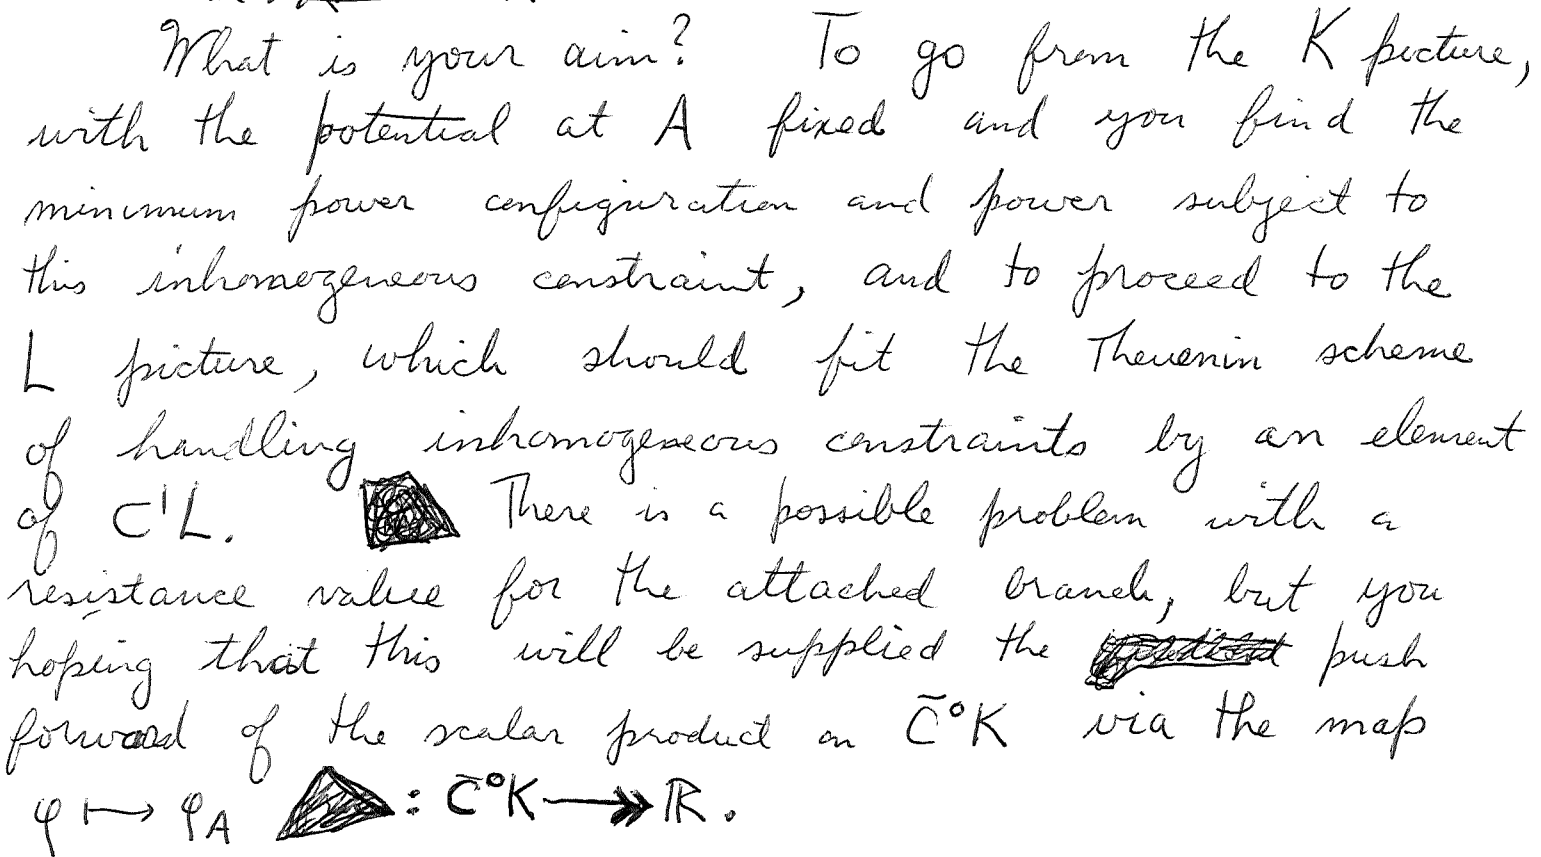 What is your aim? To go from the K picture,
with the potential at A fixed and you find the
minimum power configuration and power subject to
this inhomogeneous constraint, and to proceed to the
L picture, which should fit the Thevenin scheme
of handling inhomogeneous constraints by an element
of C¹L. There is a possible problem with a
resistance value for the attached branch, but you
hoping that this will be supplied the push
forward of the scalar product on C̄⁰K via the map
φ ↦ φ_A : C̄⁰K ↠ ℝ.